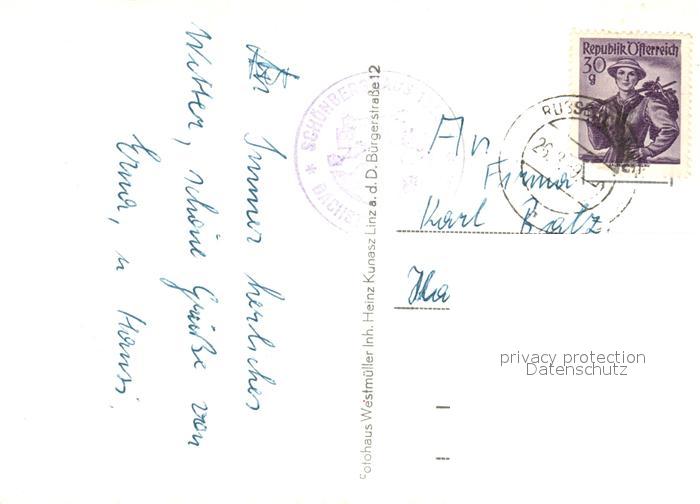 Immer herliches
Wetter, schöne Grüße von
Erna, u Hansi.
Fotohaus Westmüller Inh. Heinz Kunasz Linz a. d. D. Bürgerstraße 12
Republik Österreich
30
g
An
Firma
Karl
privacy protection
Datenschutz